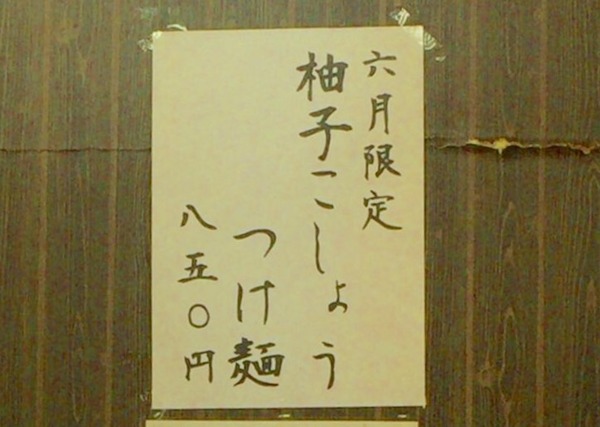 六月限定
柚子こしょう
つけ麺
八五〇円